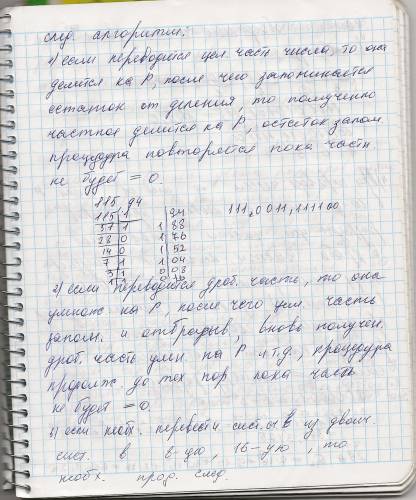 след. алгоритм:
1) если переводится цел. часть числа, то она
делится на P, после чего запоминается
остаток от деления, то полученно
частное делится на P, остаток запом.
процедура повторяется пока частн
не будет = 0.
115, 94
115 1 94 111,0011,111100
57 1 1 88
28 0 1 76
14 0 1 52
7 1 1 04
3 1 0 08
1 0 16
2) если переводится дроб. часть, то она
умнож на P, после чего цел. часть
запом. и отбросив, вновь получен.
дроб. часть умн. на P и т.д., процедура
продолж. до тех пор пока часть
не будет = 0.
если необх. перевести сист. из двоич.
сист. в 8-ую, 16-ую, то
необх. след.